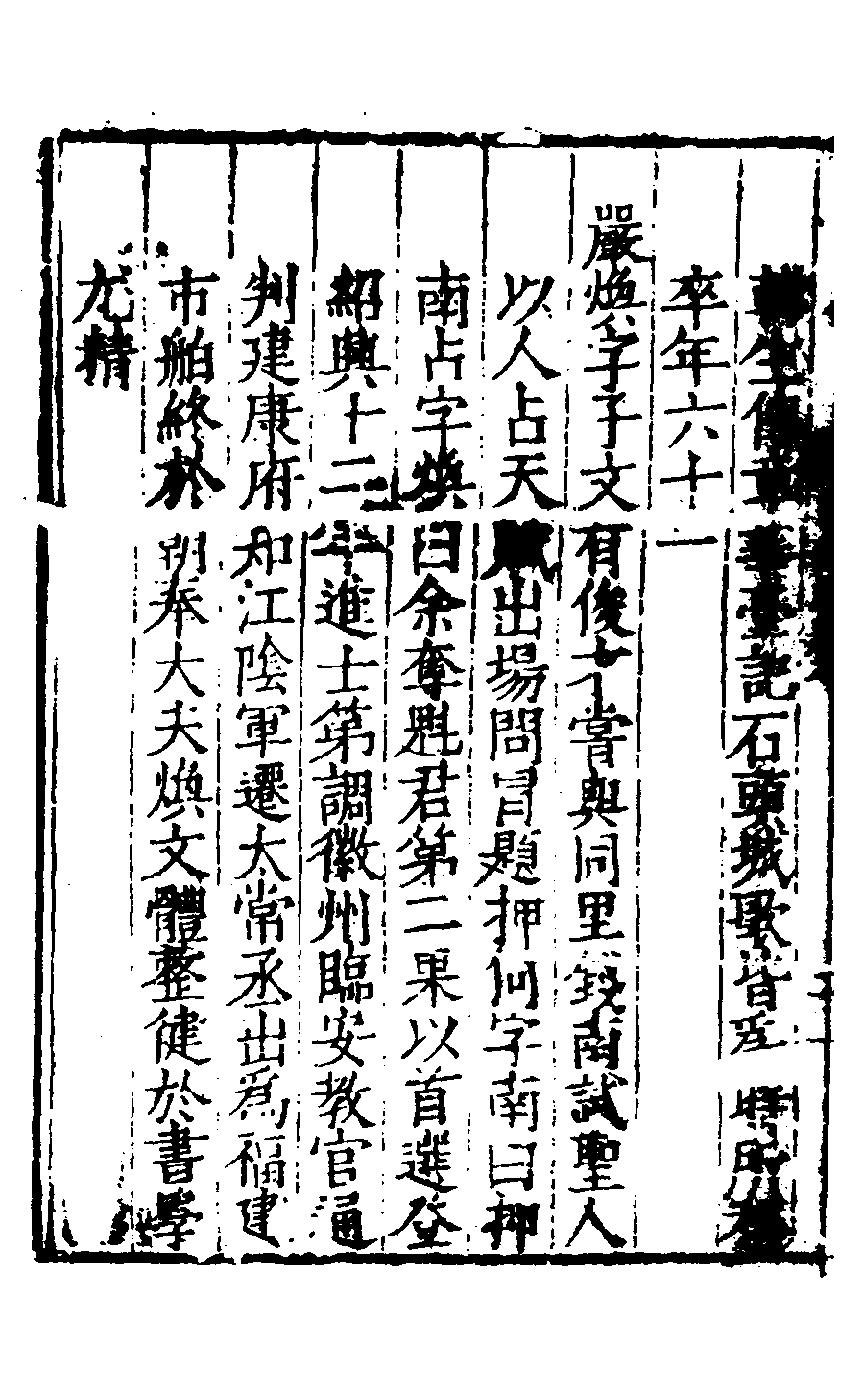 韓生傳章華臺記石頭城歌皆爲 時所稱
卒年六十一
嚴煥字子文有俊才嘗與同里錢南試聖人
以人占天賦出場問冒題押何字南曰押
南占字煥曰余奪魁君第二果以首選登
紹興十二年進士第調徽州臨安教官通
判建康府知江陰軍遷太常丞出爲福建
市舶終於朝奉大夫煥文體整健於書學
尤精